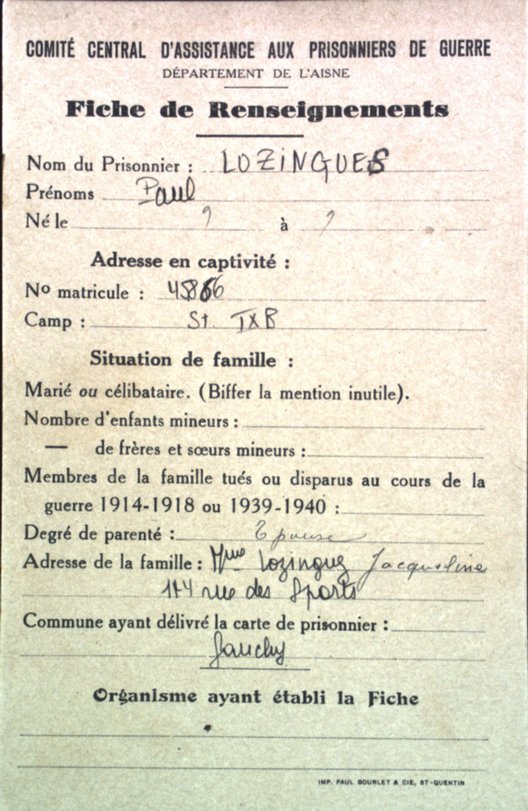 COMITÉ CENTRAL D'ASSISTANCE AUX PRISONNIERS DE GUERRE
DÉPARTEMENT DE L'AISNE
Fiche de Renseignements
Nom du Prisonnier : LOZINGUES
Prénoms Paul
Né le ? à ?
Adresse en captivité :
No matricule :
Camp : St. IXB
Situation de famille :
Marié ou célibataire. (Biffer la mention inutile).
Nombre d'enfants mineurs :
— de frères et sœurs mineurs :
Membres de la famille tués ou disparus au cours de la
guerre 1914-1918 ou 1939-1940 :
Degré de parenté : Epouse
Adresse de la famille : Mme Jacqueline
rue des Sports
Commune ayant délivré la carte de prisonnier :
Gauchy
Organisme ayant établi la Fiche
IMP. PAUL BOURLET & CIE, ST-QUENTIN